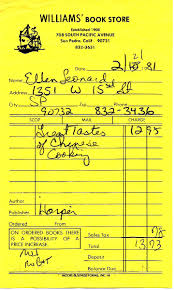 WILLIAMS' BOOK STORE
ESTABLISHED 1909
708 SOUTH PACIFIC AVENUE
San Pedro, Calif. 90731
832-3631
Date 2/21 81
Name Ellen Leonard
Address 1351 W 15th St
SP
90732 832-3436
SCOP MAIL CHARGE
Great Tastes 12 95
of Chinese
Cooking
Author
Publisher Harper
Ordered From
ON ORDERED BOOKS THERE
IS A POSSIBILITY OF A
PRICE INCREASE.
Sales Tax 78
Total 13,73
Deposit
Balance Due